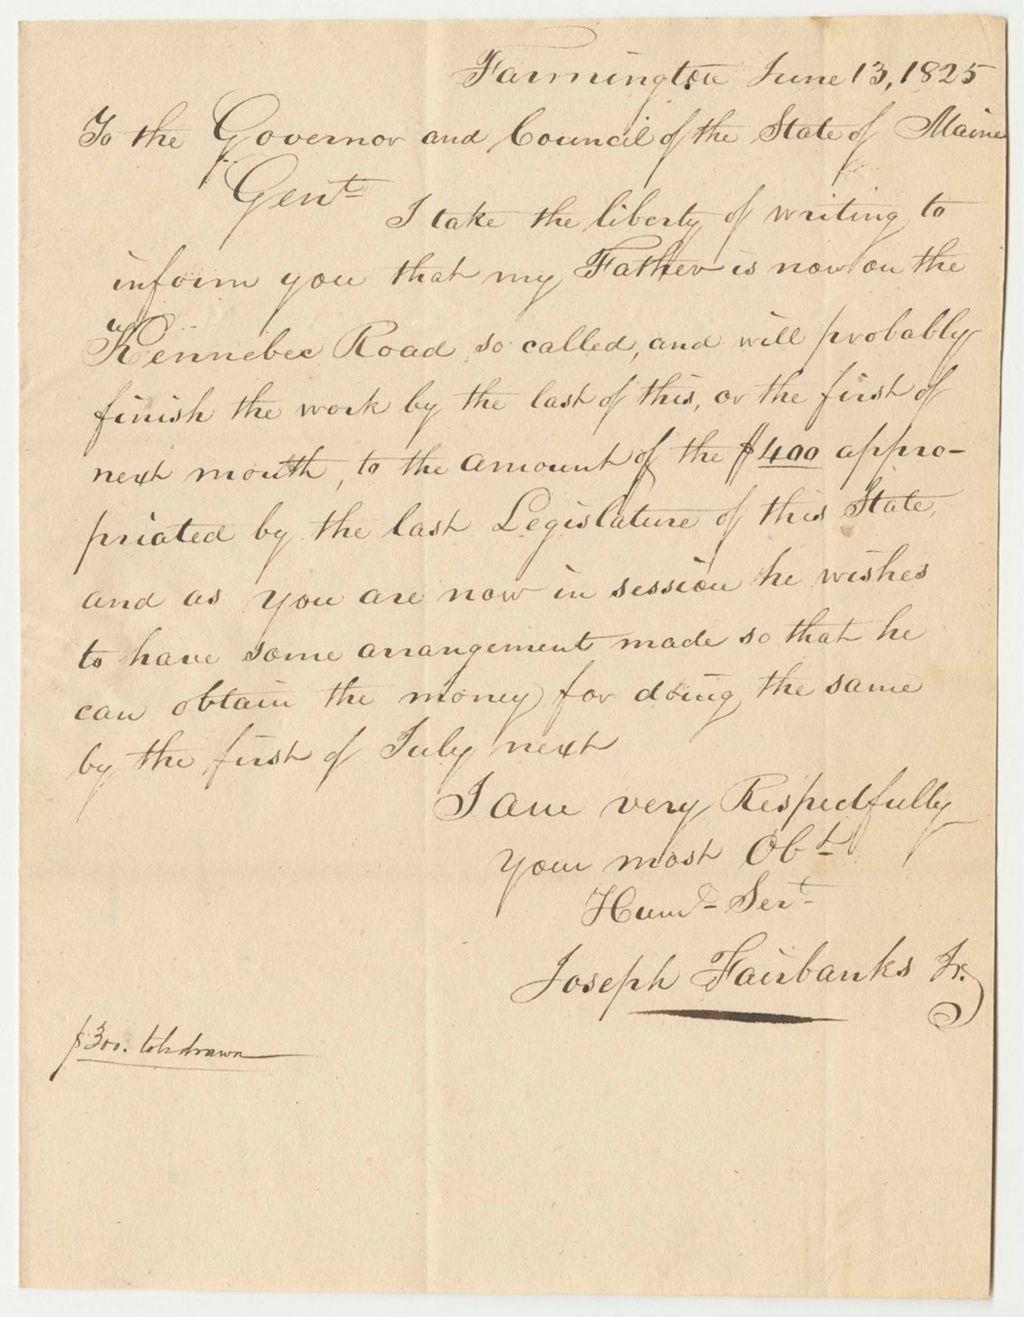 Farmington June 13, 1825
To the Governor and Council of the State of Maine
Gent.
I take the liberty of writing to
inform you that my Father is now on the
Kennebec Road so called, and will probably
finish the work by the last of this, or the first of
next month, to the amount of the $400 appro-
priated by the last Legislature of this State,
and as you are now in session he wishes
to have some arrangement made so that he
can obtain the money for doing the same
by the first of July next
I am very Respectfully
your most Obt
Humb Sert
Joseph Fairbanks Jr.
$300. to be drawn